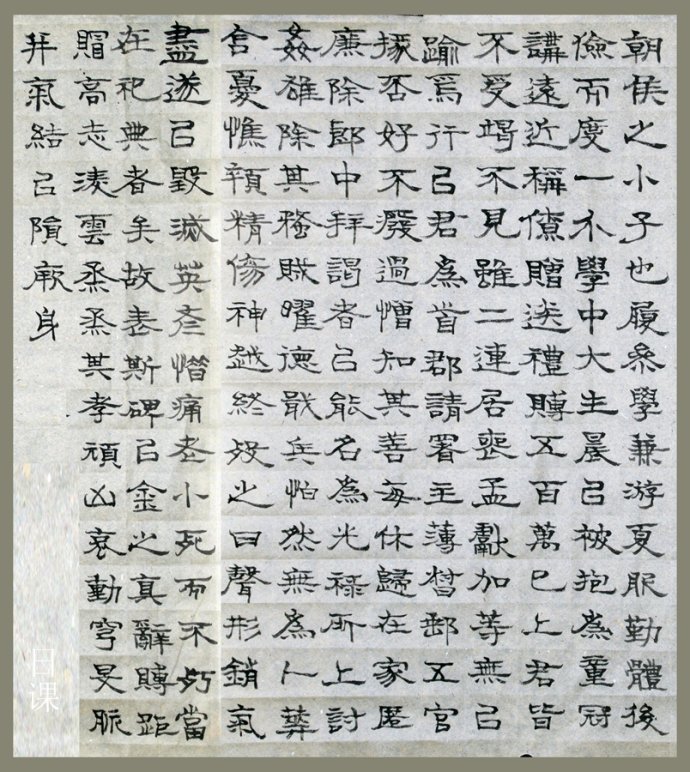 朝侯之小子也履參學兼游夏服勤體後
儉而度一介學中大主晨㠯被抱為童冠
講遠近稱僚贈送禮賻五百萬已上君皆
不受竭不見雖二連居喪孟獻加等無㠯
踰焉行己君為首郡請署主薄督郵五官
掾否好不發過憎知其善每休歸在家匿
廉除郎中拜謁者㠯能名為光祿所上討
姦雄除其蝥賊曜德戢兵怕然無為卜葬
含憂憔顇精傷神越終歿之日聲形銷氣
盡遂㠯毀滅英彥惜痛老小死而不朽當
在祀典者矣故表斯碑㠯金之真辭賻距
賵高志凌雲烝烝其孝頑凶哀動穹旻脈
并氣結㠯隕厥身
日课